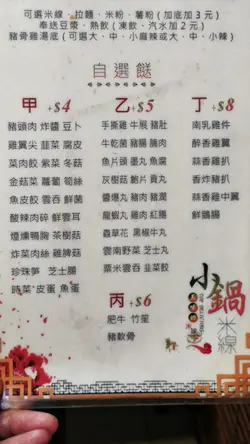 可選米線、拉麵、米粉、薯粉（加底加3元）
奉送豆漿、熱飲（凍飲、汽水加2元）
豬骨雞湯底（可選大、中、小麻辣或大、中、小辣）
自選餸
甲+$4
豬頭肉 炸醬 豆卜
雞翼尖 韭菜 腐皮
菜肉餃 紫菜 冬菇
金菇菜 蘿蔔 筍絲
魚皮餃 雲吞 鮮菌
酸辣肉碎 鮮雲耳
煙燻鴨胸 茶樹菇
炸菜肉絲 雞脾菇
珍珠筍 芝士腸
時菜 皮蛋 魚蛋
乙+$5
手撕雞 牛展 豬肚
牛乾菌 豬腸 腩肉
魚片頭 墨丸 魚腐
灰樹菇 鮑片 貢丸
醬爆丸 豬肉 豬潤
龍蝦丸 雞肉 紅腸
蟲草花 黑椒牛丸
雲南野菜 芝士丸
粟米雲吞 韭菜餃
丙+$6
肥牛 竹笙
豬軟骨
丁+$8
南乳雞件
醉香雞翼
蒜香雞扒
香炸豬扒
蒜香雞中翼
鮮鵝腸
小鍋
米線